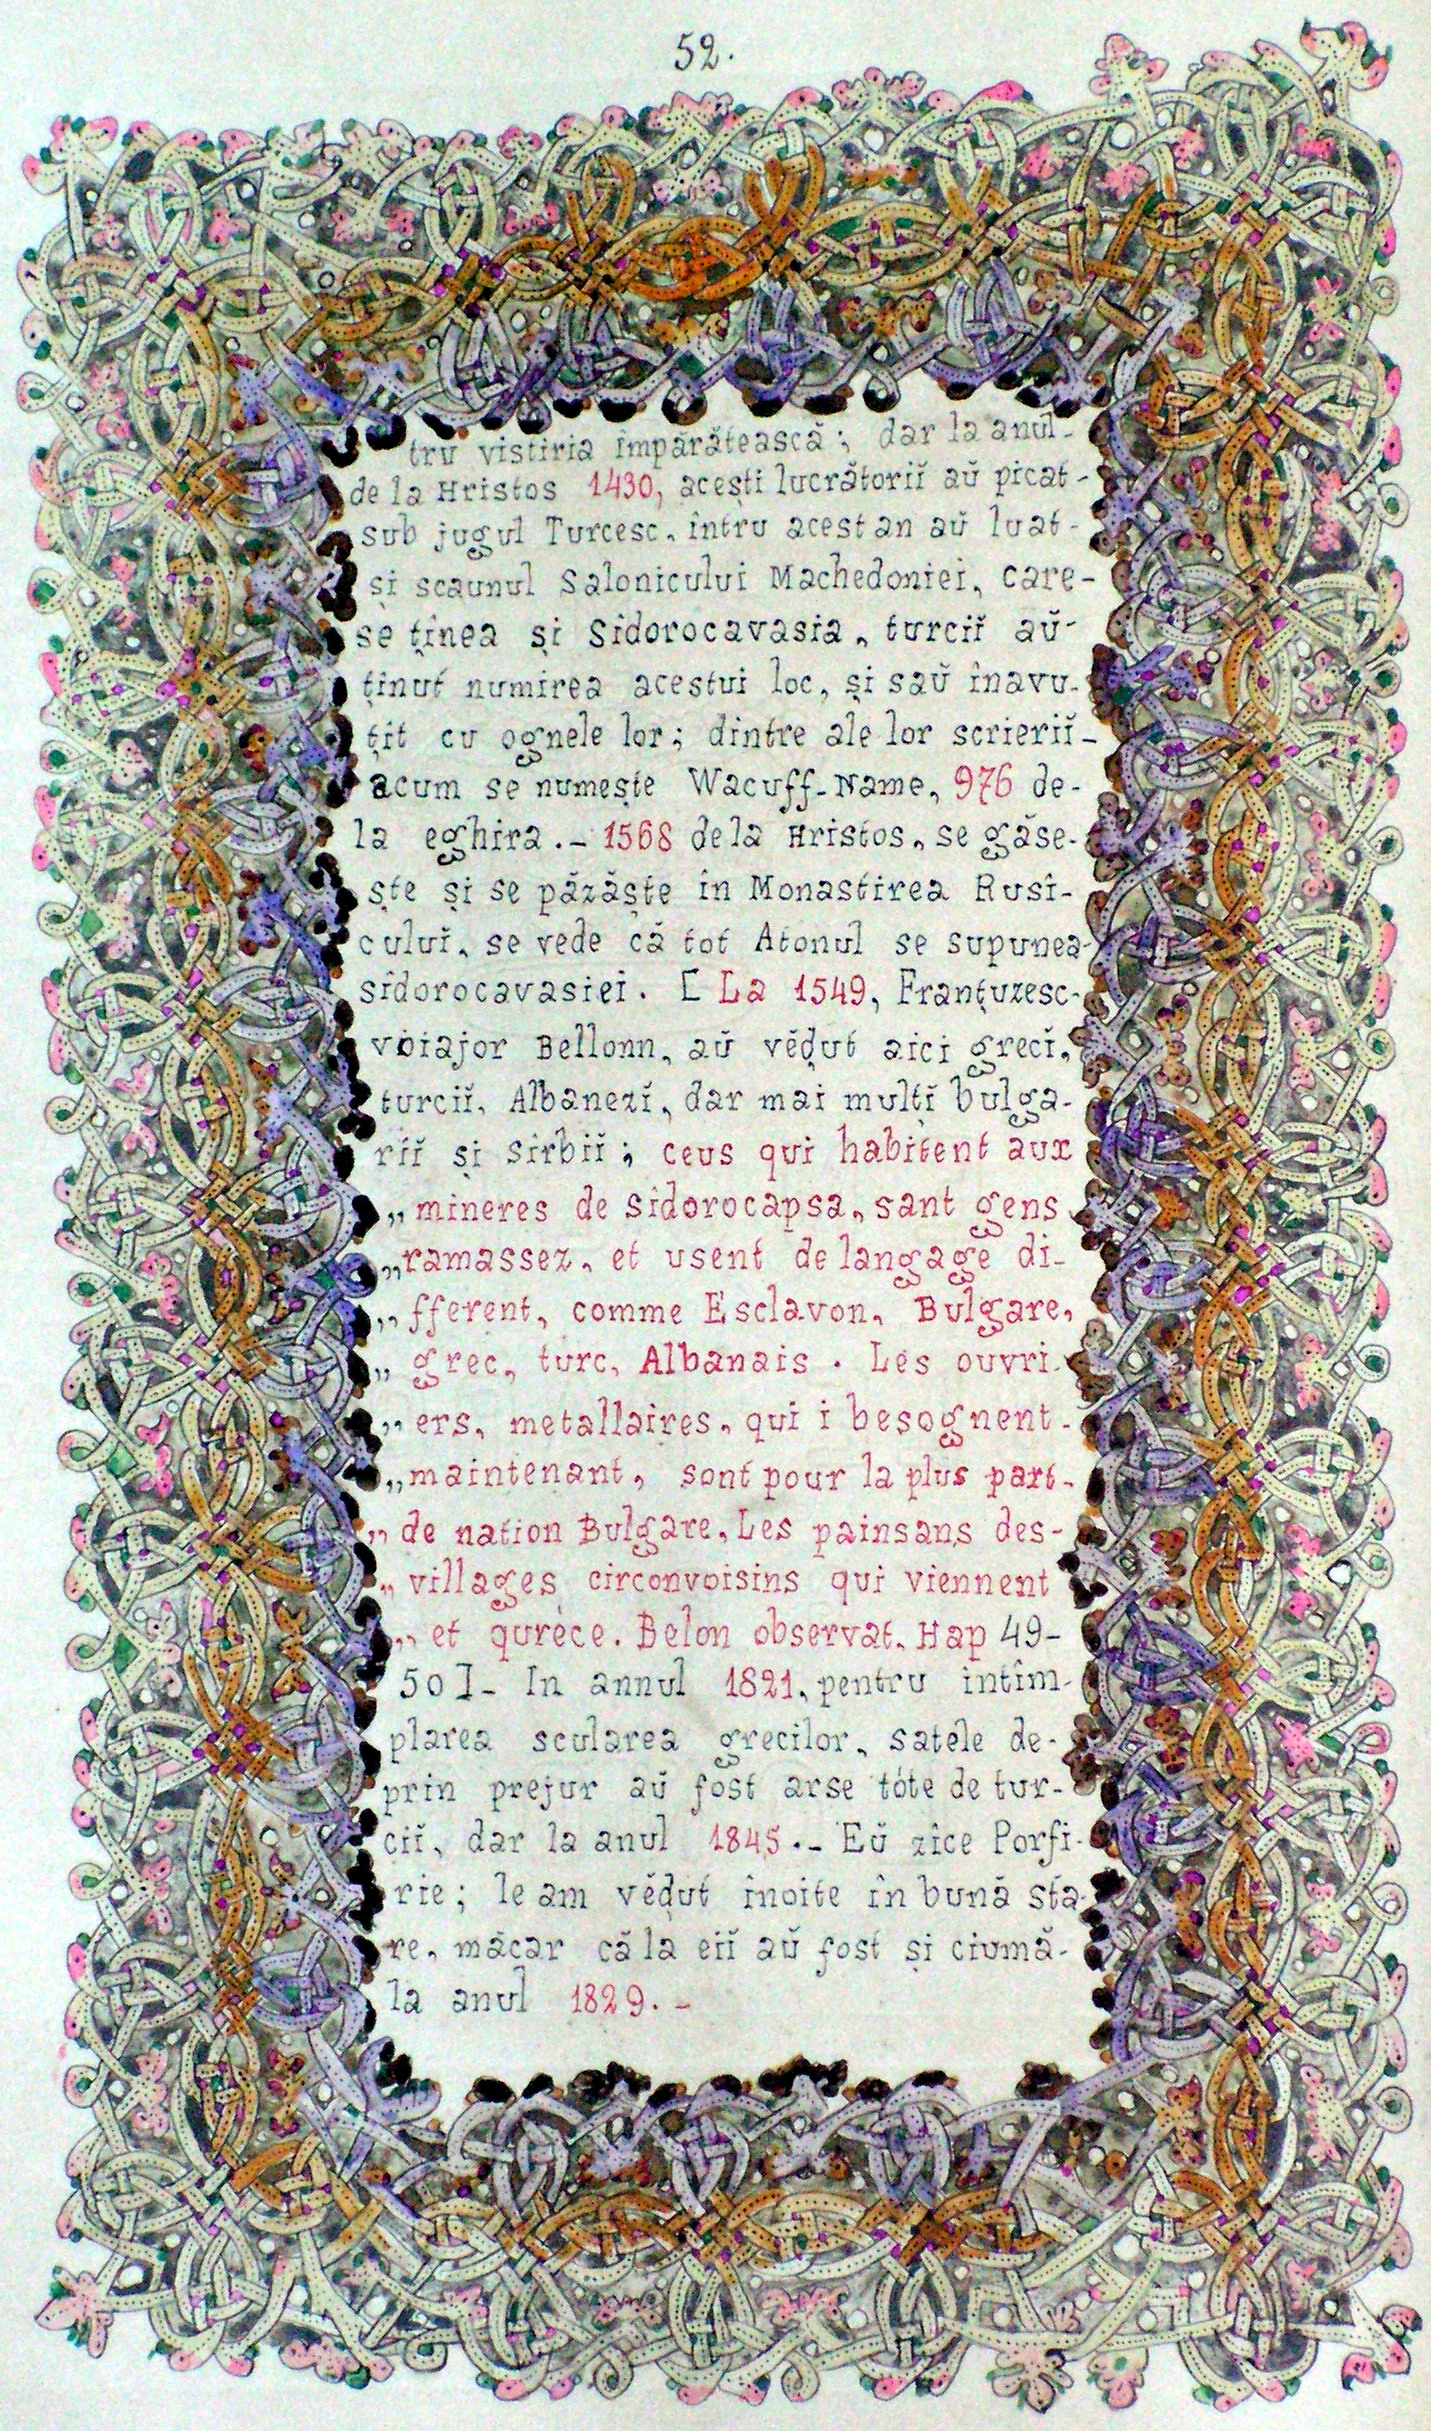 52.
tru vistiria împărătească; dar la anul-
de la Hristos 1430, acești lucrătoriĭ aŭ picat-
sub jugul Turcesc, întru acest an aŭ luat-
și scaunul Salonicului Machedoniei, care-
se ținea și Sidorocavasia, turciĭ aŭ-
ținut numirea acestui loc, și saŭ înavu-
țit cu ognele lor; dintre ale lor scrieriĭ-
acum se numește Wacuff-Name, 976 de-
la eghira.- 1568 de la Hristos, se găse-
ște și se păzăște în Monastirea Rusî-
culuĭ, se vede că tot Atonul se supunea-
sidorocavasiei. [ La 1549, Franțuzesc-
voiajor Bellonn, aŭ vĕḑut aici grecĭ,
turciĭ, Albanezĭ, dar mai mulțĭ bulga-
riĭ și sirbiĭ; ceus qui habitent aux
„ mineres de Sidorocapsa, sant gens
„ ramassez, et usent de langage di-
„ fferent, comme Esclavon, Bulgare,
„ grec, turc, Albanais. Les ouvri-
„ ers, metallaires, qui i besognent-
„ maintenant, sont pour la plus part-
„ de nation Bulgare, Les painsans des-
„ villages circonvoisins qui viennent
„ et qurèce. Belon observat. Hap 49-
50]- In annul 1821, pentru intîm-
plarea scularea grecilor, satele de-
prin prejur aŭ fost arse tóte de tur-
ciĭ, dar la anul 1845.- Eŭ zîce Porfi-
rie; le am vĕḑut înoite în bună sta-
re, măcar că la eiĭ aŭ fost și ciumă-
la anul 1829.-